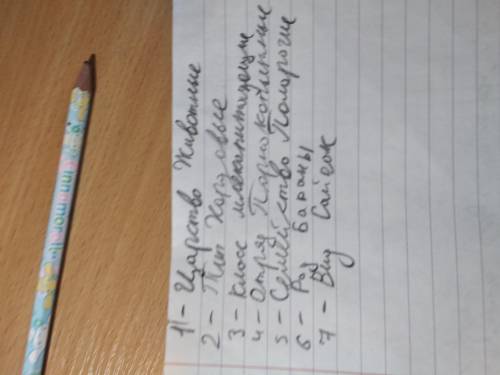 1 - Царство Животные
2 - Тип Хордовые
3 - Класс млекопитающие
4 - Отряд Парнокопытные
5 - Семейство Полорогие
6 - Род Бараны
7 - Вид Сайгак